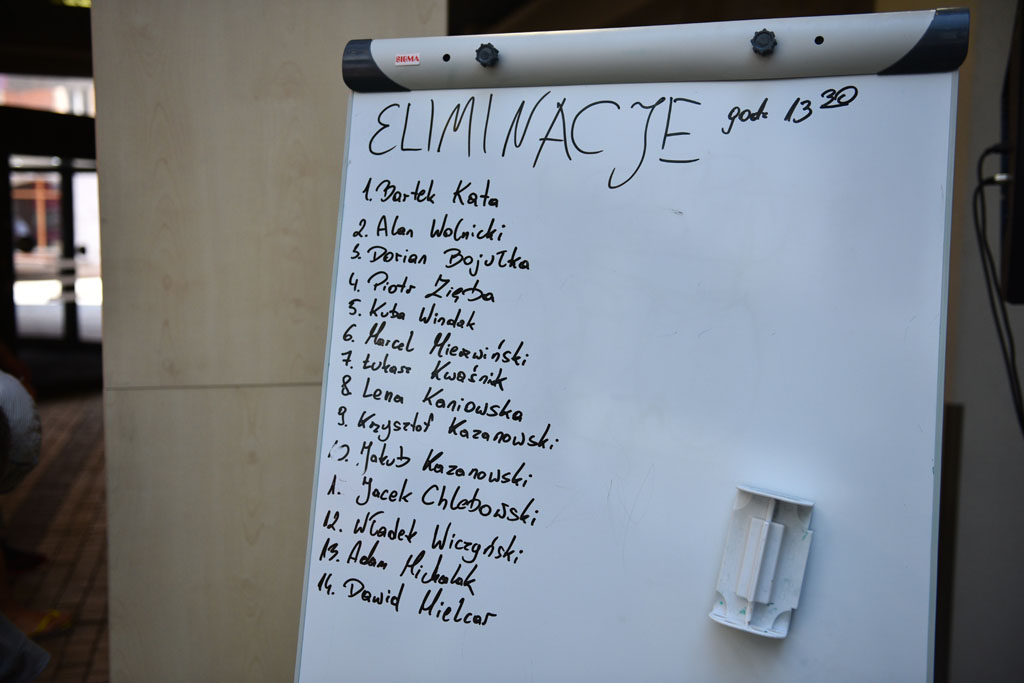 SIGMA
ELIMINACJE godz 13 30
1. Bartek Kata
2. Alan Wolnicki
3. Dorian Bojułka
4. Piotr Zięba
5. Kuba Windak
6. Marcel Mierzwiński
7. Łukasz Kwaśnik
8 Lena Kaniowska
9. Krzysztof Kazanowski
10. Jakub Kazanowski
1. Jacek Chlebowski
12. Władek
13. Adam Michalak
14. Dawid Mielcar